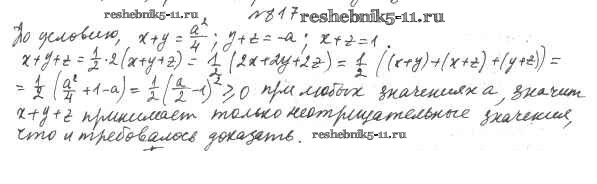 reshebnik5-11.ru №817 reshebnik5-11.ru
По условию, x+y = a²/4 ; y+z = -a ; x+z = 1 .
x+y+z = 1/2 · 2(x+y+z) = 1/2 (2x+2y+2z) = 1/2 ((x+y)+(x+z)+(y+z)) =
= 1/2 (a²/4 + 1 - a) = 1/2 (a/2 - 1)² ≥ 0 при любых значениях a, значит
x+y+z принимает только неотрицательные значения,
что и требовалось доказать. reshebnik5-11.ru